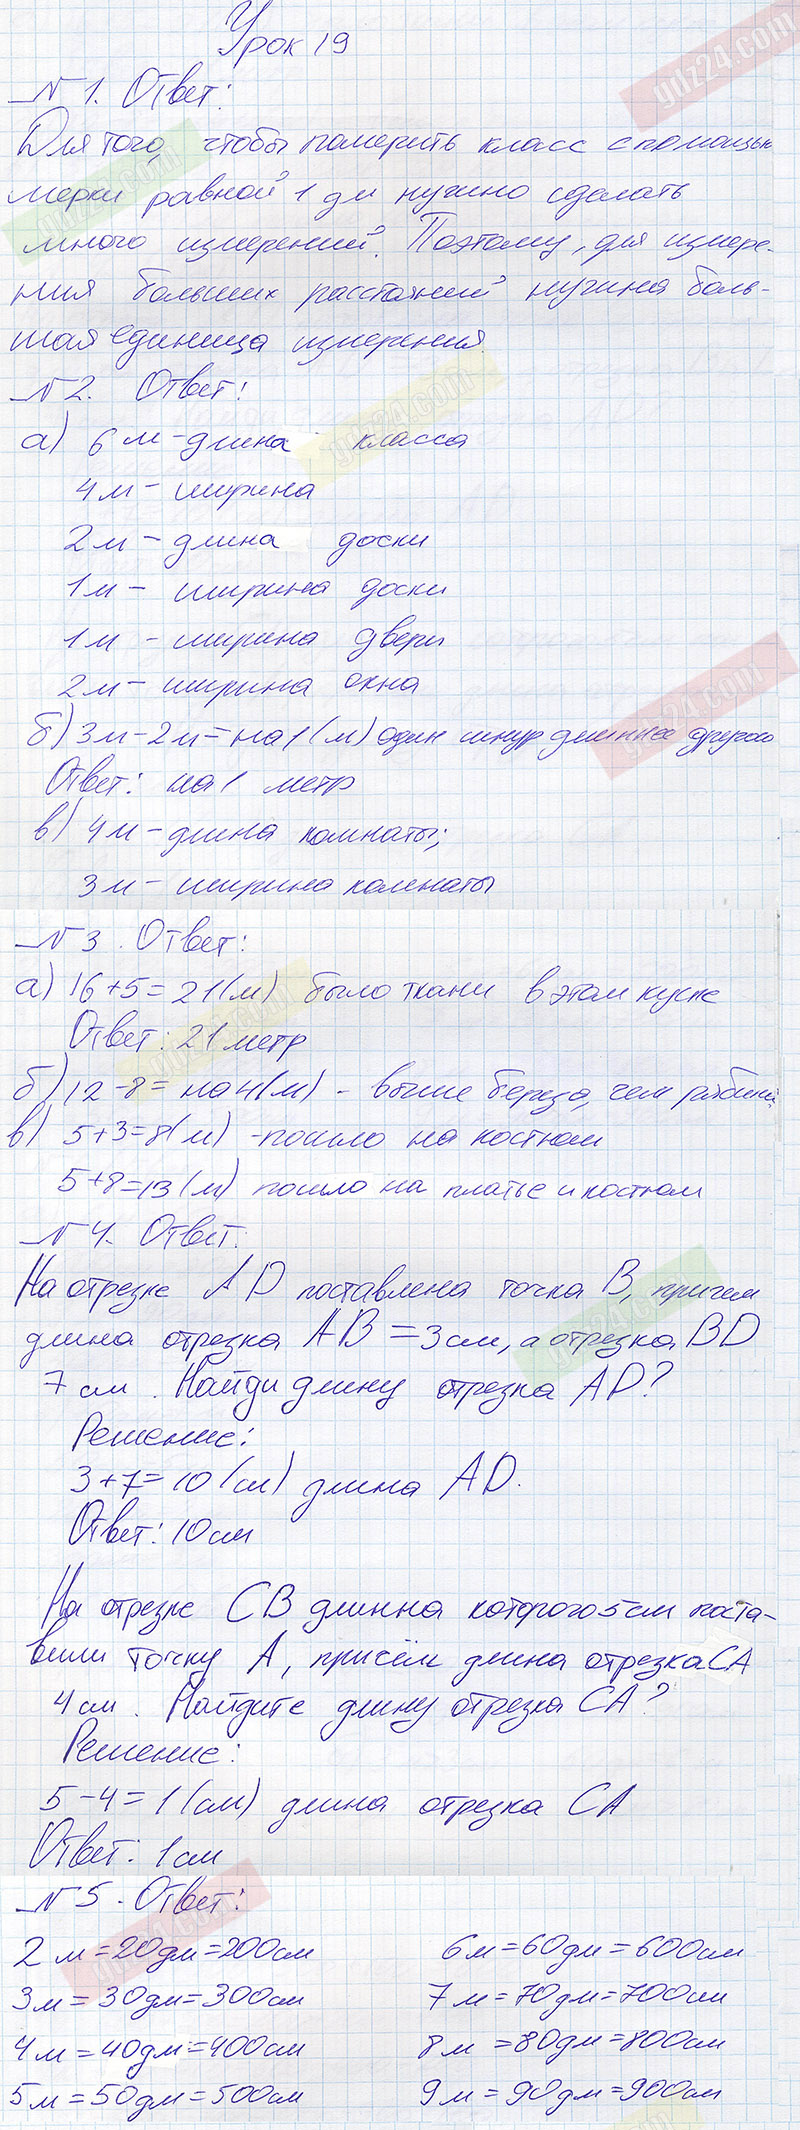 Урок 19
№ 1. Ответ:
Для того, чтобы померить класс с помощью
мерки равной 1 дм нужно сделать
много измерений. Поэтому, для измере-
ния больших расстояний нужна боль-
шая единица измерения.
№ 2. Ответ:
а) 6 м - длина класса
4м - ширина
2м - длина доски
1м - ширина доски
1м - ширина двери
2м - ширина окна
б) 3м - 2м = на 1 (м) один шнур длиннее другого
Ответ: на 1 метр
в) 4м - длина комнаты;
3м - ширина комнаты
№ 3. Ответ:
а) 16 + 5 = 21 (м) было ткани в этом куске
Ответ: 21 метр
б) 12 - 8 = на 4 (м) - выше береза, чем рябина
в) 5 + 3 = 8 (м) - пошло на костюм
5 + 8 = 13 (м) пошло на платье и костюм
№ 4. Ответ.
На отрезке AD поставлена точка B, причем
длина отрезка AB = 3 см, а отрезка BD
7 см. Найди длину отрезка AD?
Решение:
3 + 7 = 10 (см) длина AD.
Ответ: 10 см
На отрезке CB длинна которого 5 см поста-
вили точку A, причём длина отрезка CA
4 см. Найдите длину отрезка CA?
Решение:
5 - 4 = 1 (см) длина отрезка CA
Ответ: 1 см
№ 5. Ответ:
2 м = 20 дм = 200 см 6 м = 60 дм = 600 см
3 м = 30 дм = 300 см 7 м = 70 дм = 700 см
4 м = 40 дм = 400 см 8 м = 80 дм = 800 см
5 м = 50 дм = 500 см 9 м = 90 дм = 900 см
gdz24.com
gdz24.com
gdz24.com
gdz24.com
gdz24.com
gdz24.com
gdz24.com